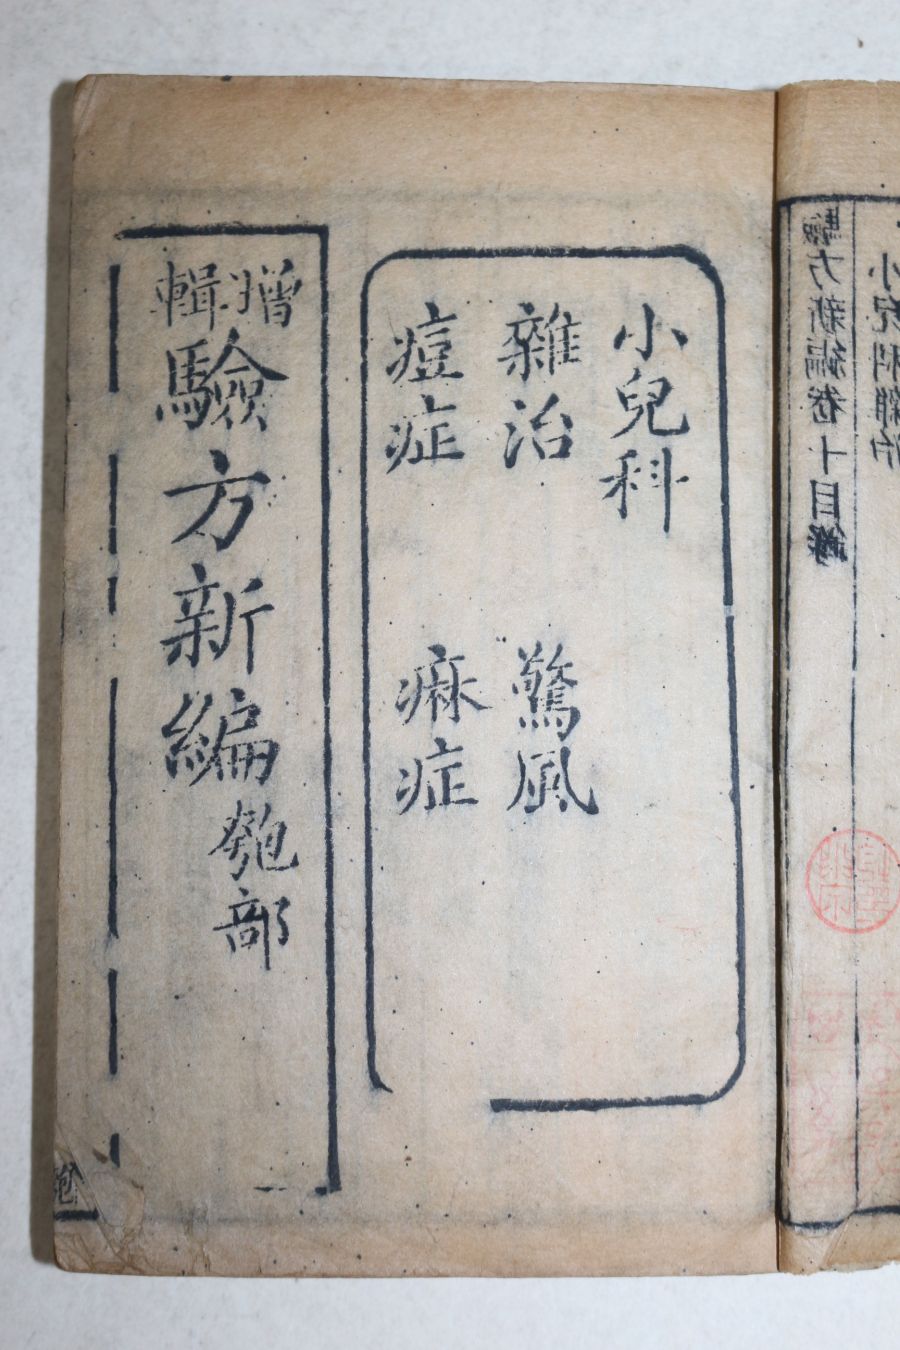 小兒科
雜治 驚風
痘症 痳症
增輯
驗方新編 匏部
驗方新編卷十目錄
小兒科雜治